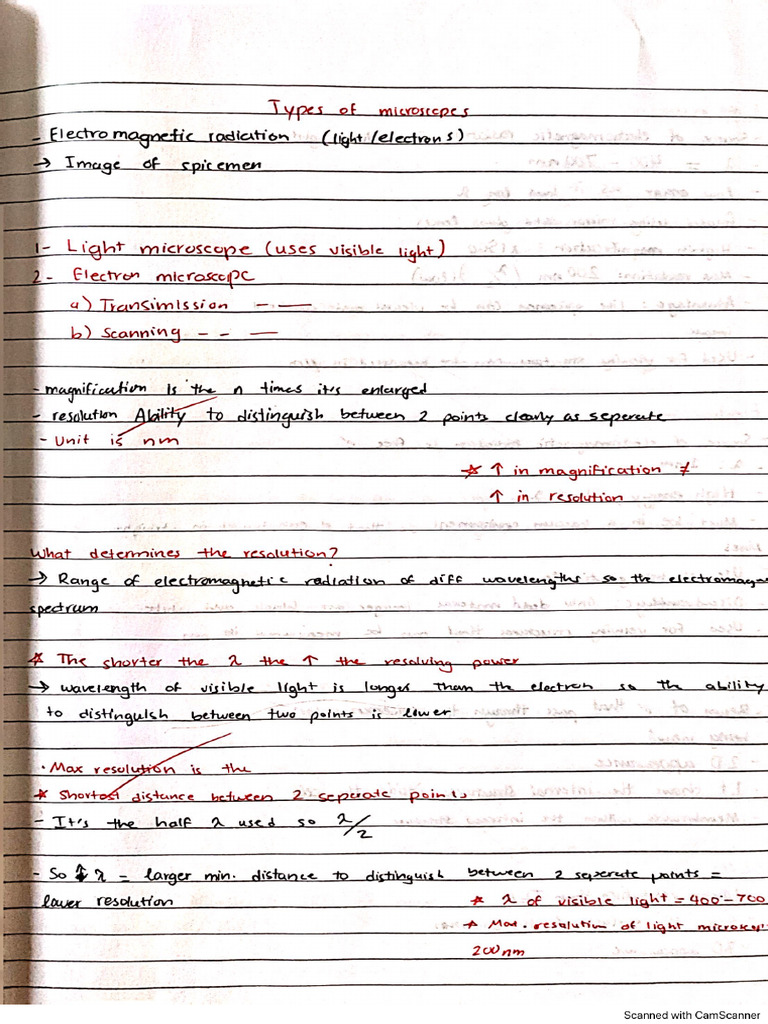 Types of microscopes
- Electromagnetic radiation (light/electrons)
→ Image of spicemen
1- Light microscope (uses visible light)
2- Electron microscope
a) Transimission - —
b) Scanning - - —
- magnification is the n times it's enlarged
- resolution Ability to distinguish between 2 points clearly as seperate
- Unit is nm
☆ ↑ in magnification ≠
↑ in resolution
What determines the resolution?
→ Range of electromagnetic radiation of diff wavelengths so the electromag
spectrum
☆ The shorter the λ the ↑ the resolving power
→ wavelength of visible light is longer than the electron so the ability
to distinguish between two points is lower
• Max resolution is the
☆ Shortest distance between 2 seperate points
- It's the half λ used so λ/2
- So ↑ λ = larger min. distance to distinguish between 2 seperate points =
lower resolution
☆ λ of visible light = 400-700
☆ Max. resolution of light microscop
200nm
Scanned with CamScanner